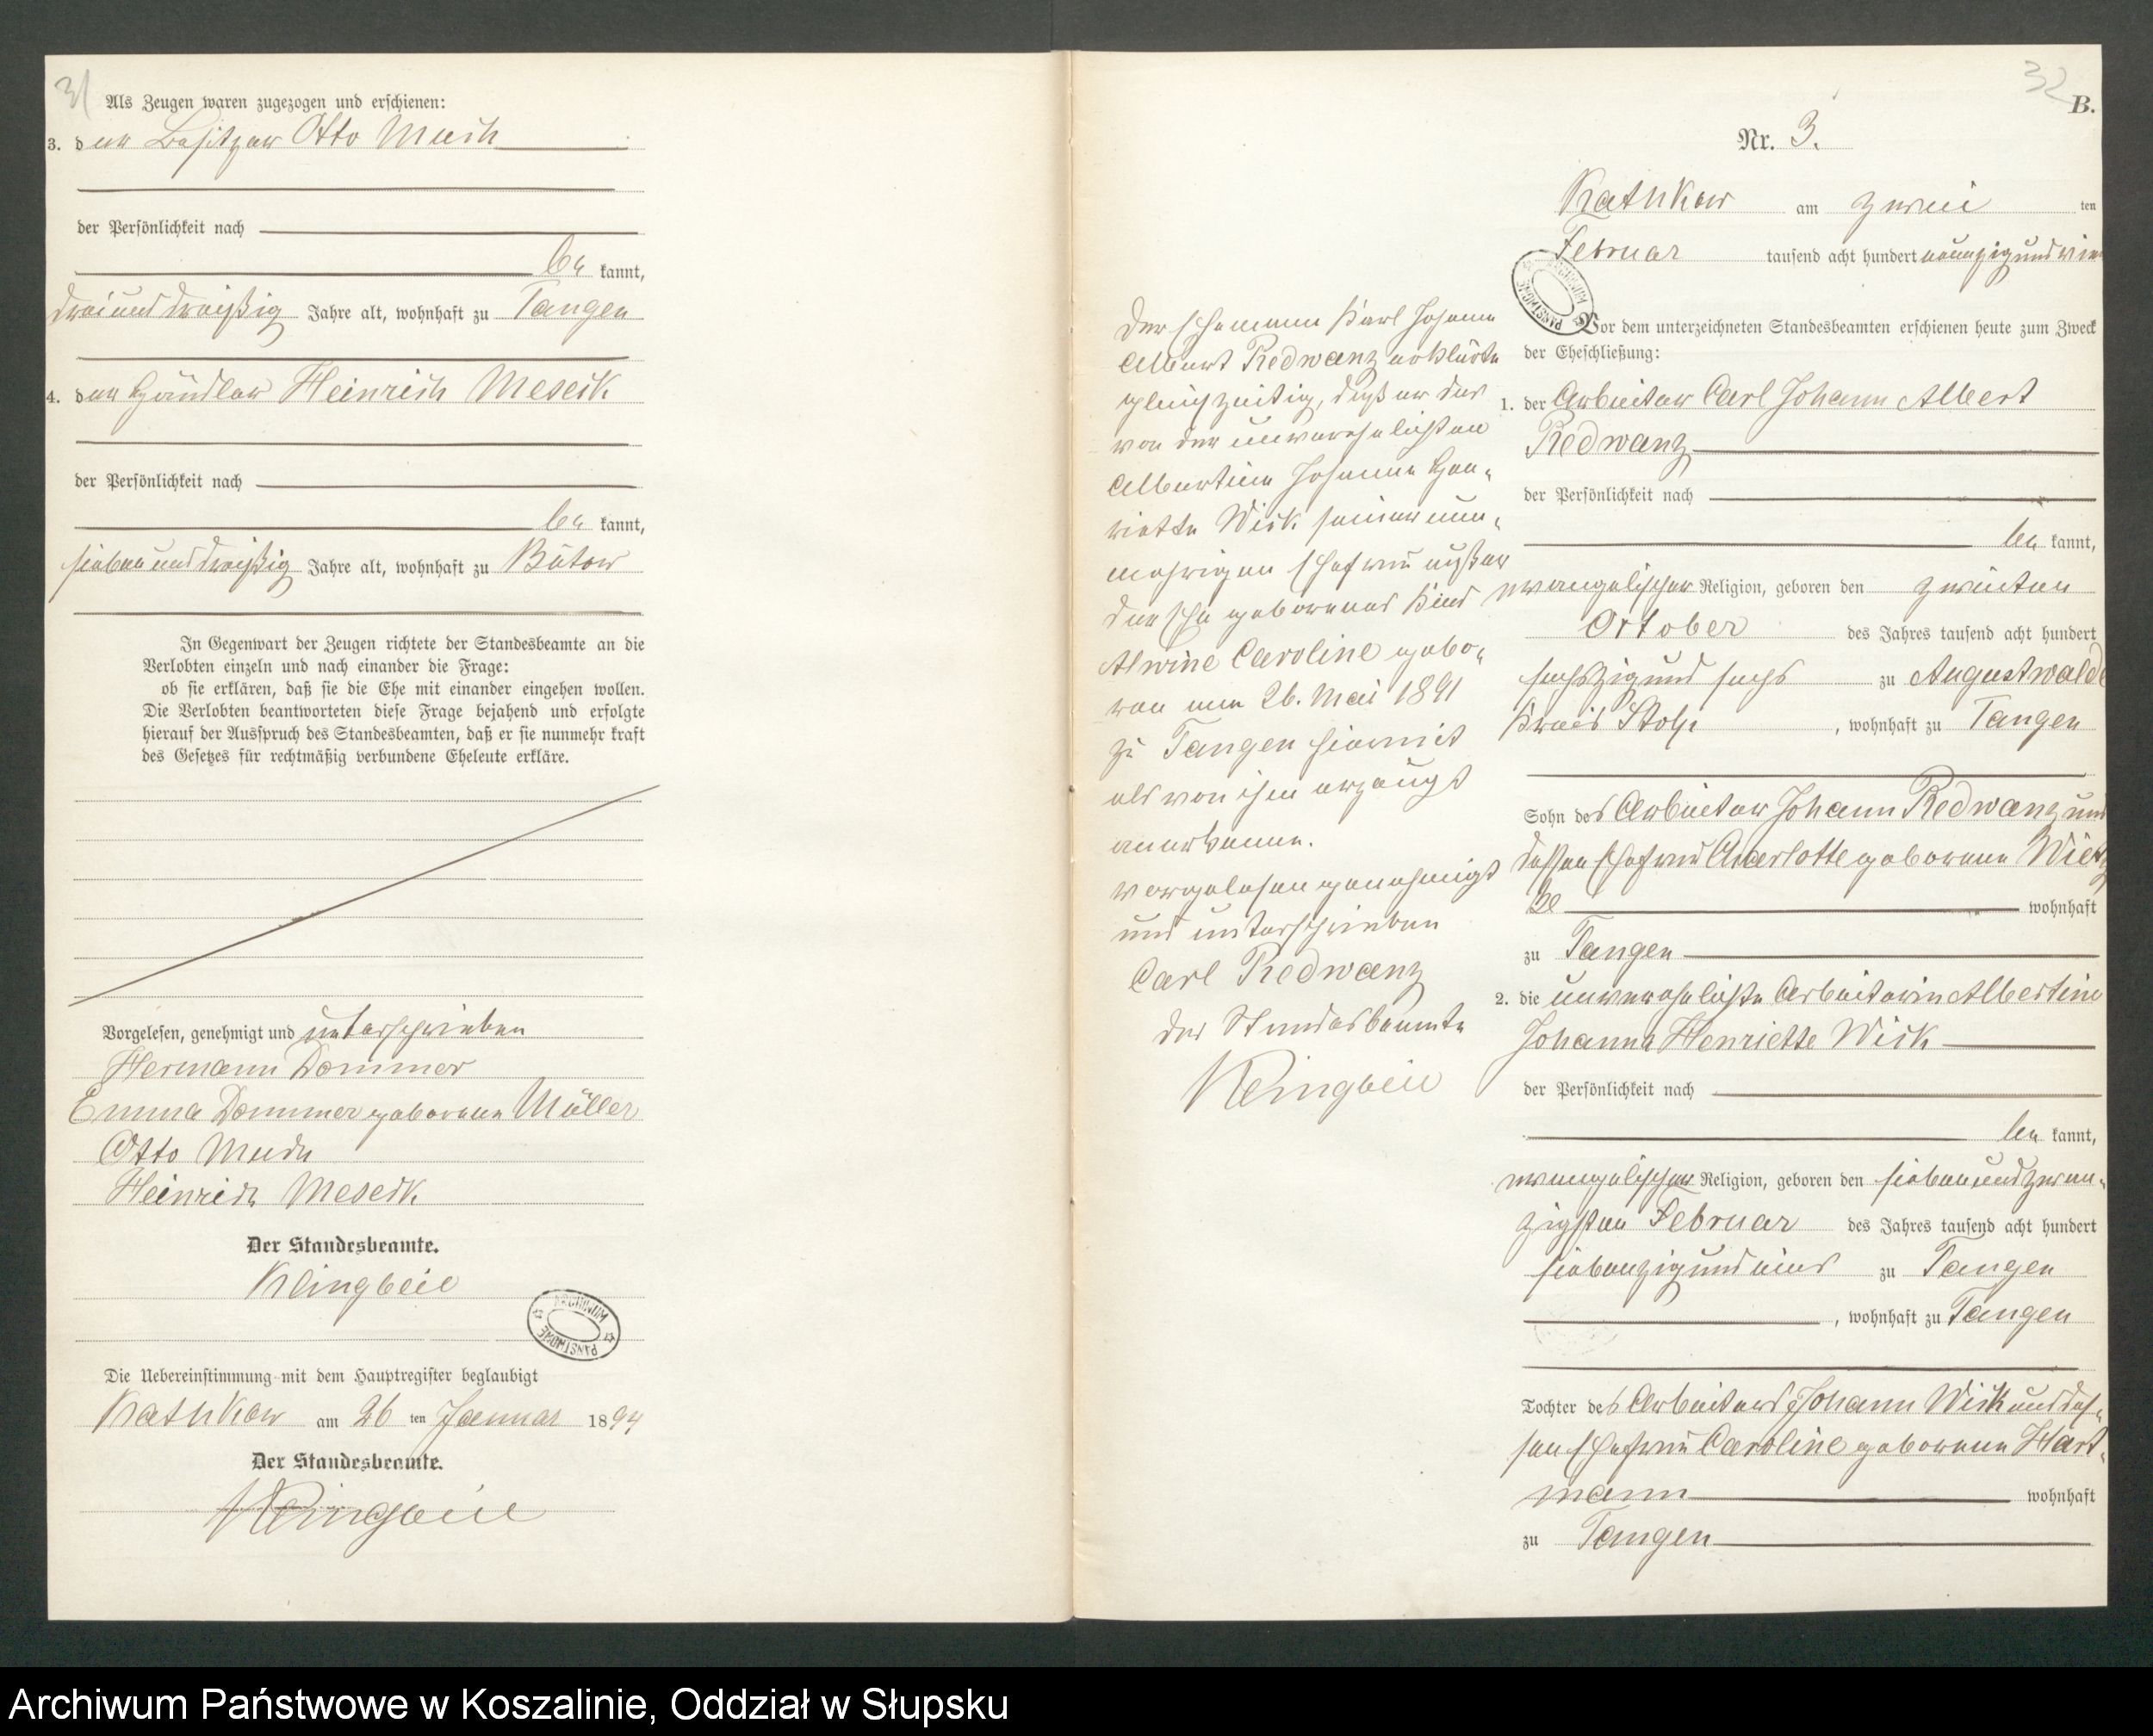 31
Als Zeugen waren zugezogen und erschienen:
3. den Besitzer Otto Much
der Persönlichkeit nach
be kannt,
dreiunddreißig Jahre alt, wohnhaft zu Tangen
4. den Händler Heinrich Meseck
der Persönlichkeit nach
be kannt,
siebenunddreißig Jahre alt, wohnhaft zu Bütow
In Gegenwart der Zeugen richtete der Standesbeamte an die
Verlobten einzeln und nach einander die Frage:
ob sie erklären, daß sie die Ehe mit einander eingehen wollen.
Die Verlobten beantworteten diese Frage bejahend und erfolgte
hierauf der Ausspruch des Standesbeamten, daß er sie nunmehr kraft
des Gesetzes für rechtmäßig verbundene Eheleute erkläre.
Vorgelesen, genehmigt und unterschrieben
Hermann Dommer
Emma Dommer geborene Müller
Otto Much
Heinrich Meseck
Der Standesbeamte.
Klingbeil
ARCHIWUM PAŃSTWOWE
Die Uebereinstimmung mit dem Hauptregister beglaubigt
Kathkow am 26 ten Januar 1894
Der Standesbeamte.
Klingbeil
32
B.
Nr. 3.
Kathkow am zwei ten
Februar tausend acht hundert neunzigundvier
ARCHIWUM PAŃSTWOWE
Vor dem unterzeichneten Standesbeamten erschienen heute zum Zweck
der Eheschließung:
1. der Arbeiter Carl Johann Albert
Redwanz
der Persönlichkeit nach
be kannt,
evangelischer Religion, geboren den zweiten
October des Jahres tausend acht hundert
sechszigundsechs zu Augustwalde
Kreis Stolp, wohnhaft zu Tangen
Sohn des Arbeiter Johann Redwanz und
dessen Ehefrau Charlotte geborene Wietz
ke wohnhaft
zu Tangen
2. die unverehelichte Arbeiterin Albertine
Johanna Henriette Wick
der Persönlichkeit nach
be kannt,
evangelischer Religion, geboren den siebenundzwan-
zigsten Februar des Jahres tausend acht hundert
siebenzigundeins zu Tangen
, wohnhaft zu Tangen
Tochter des Arbeiters Johann Wick und des-
sen Ehefrau Caroline geborene Hart-
mann wohnhaft
zu Tangen
Der Ehemann Karl Johann
Albert Redwanz erklärte
gleichzeitig, daß er das
von der unverehelichten
Albertine Johanna Hen-
riette Wick seiner nun-
mehrigen Ehefrau außer
der Ehe geborenes Kind
Alwine Caroline gebo-
ren am 26. Mai 1891
zu Tangen hiermit
als von ihm erzeugt
anerkenne.
vorgelesen genehmigt
und unterschrieben
Carl Redwanz
Der Standesbeamte
Klingbeil
Archiwum Państwowe w Koszalinie, Oddział w Słupsku